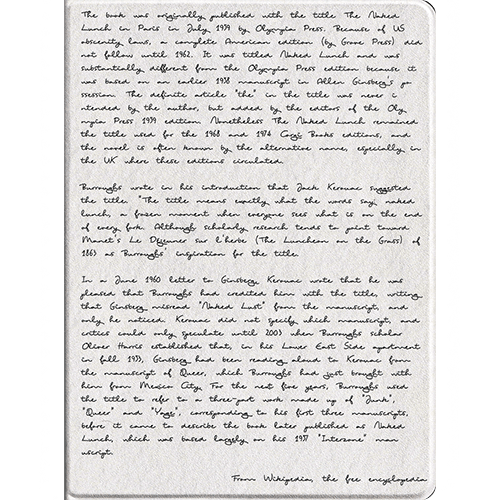 The book was originally published with the title The Naked
Lunch in Paris in July 1959 by Olympia Press. Because of US
obscenity laws, a complete American edition (by Grove Press) did
not follow until 1962. It was titled Naked Lunch and was
substantially different from the Olympia Press edition because it
was based on an earlier 1958 manuscript in Allen Ginsberg's po
ssession. The definite article "the" in the title was never i
ntended by the author, but added by the editors of the Oly
mpia Press 1959 edition. Nonetheless The Naked Lunch remained
the title used for the 1968 and 1974 Corgi Books editions, and
the novel is often known by the alternative name, especially in
the UK where these editions circulated.
Burroughs wrote in his introduction that Jack Kerouac suggested
the title. "The title means exactly what the words say: naked
lunch, a frozen moment when everyone sees what is on the end
of every fork. Although scholarly research tends to point toward
Manet's Le Déjeuner sur l'herbe (The Luncheon on the Grass) of
1863 as Burroughs' inspiration for the title.
In a June 1960 letter to Ginsberg, Kerouac wrote that he was
pleased that Burroughs had credited him with the title, writing
that Ginsberg misread "Naked Lust" from the manuscript, and
only he noticed. Kerouac did not specify which manuscript, and
critics could only speculate until 2003 when Burroughs scholar
Oliver Harris established that, in his Lower East Side apartment
in fall 1953, Ginsberg had been reading aloud to Kerouac from
the manuscript of Queer, which Burroughs had just brought with
him from Mexico City. For the next five years, Burroughs used
the title to refer to a three-part work made up of "Junk",
"Queer" and "Yage", corresponding to his first three manuscripts,
before it came to describe the book later published as Naked
Lunch, which was based largely on his 1957 "Interzone" man
uscript.
From Wikipedia, the free encyclopedia